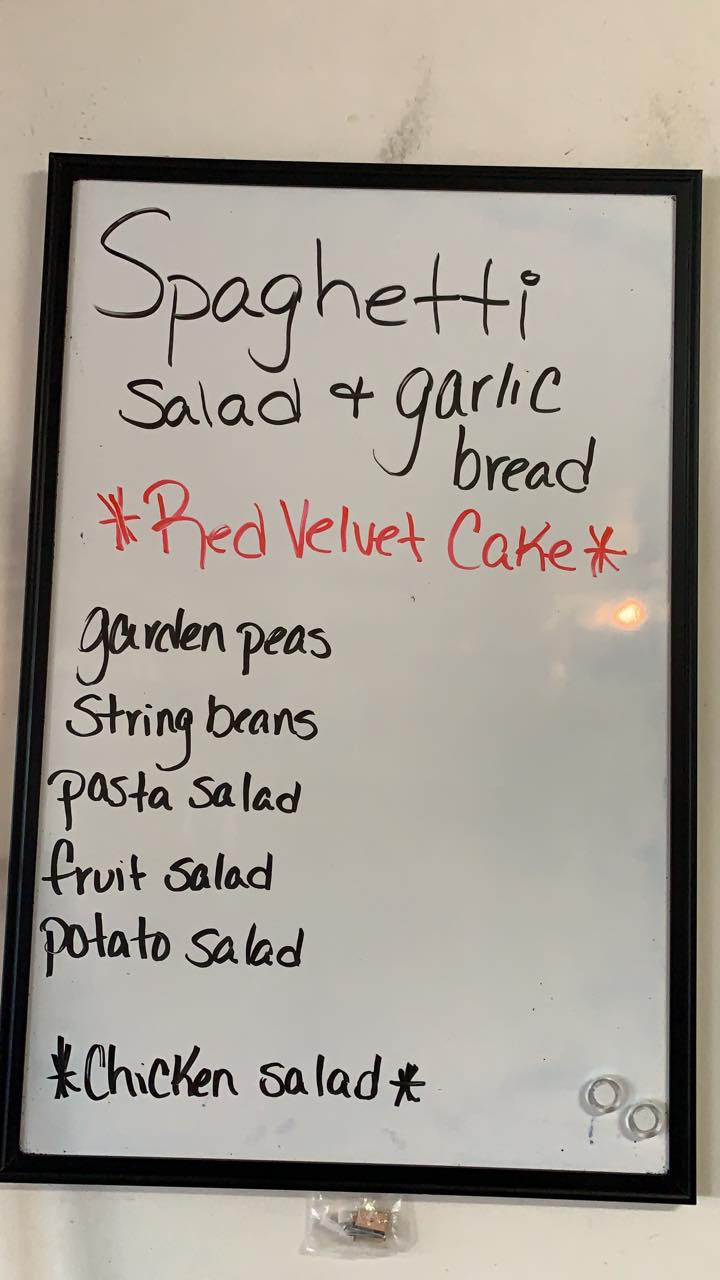 Spaghetti
salad & garlic
bread
*Red Velvet Cake*
garden peas
String beans
pasta salad
fruit salad
potato salad
*Chicken salad*